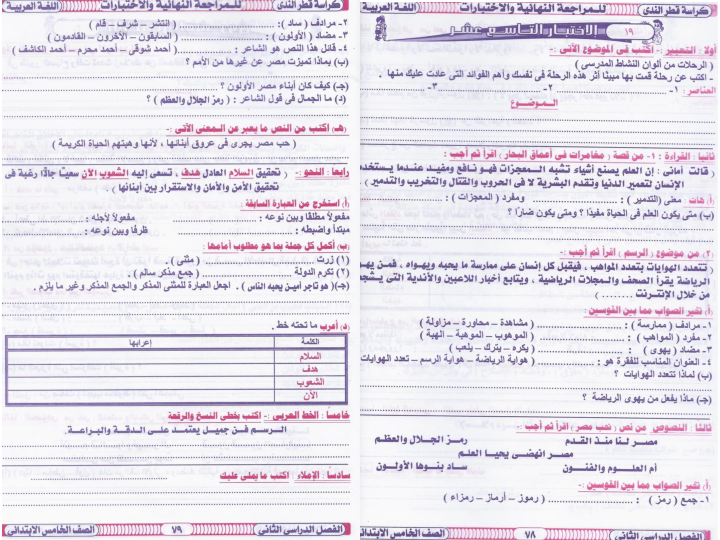 كراسة قطر الندى
للمراجعة النهائية والاختبارات
اللغة العربية
١٩
الاختبار التاسع عشر
أولا : التعبير :- اكتب فى الموضوع الآتى :-
( الرحلات من ألوان النشاط المدرسى )
- اكتب عن رحلة قمت بها مبينًا أثر هذه الرحلة فى نفسك وأهم الفوائد التى عادت عليك منها .
العناصر : ١- ........................ ٢- ........................ ٣- ........................
الموضوع
ثانيا : القراءة : ١- من قصة ( مغامرات فى أعماق البحار ) اقرأ ثم أجب :
( قالت أمانى : إن العلم يصنع أشياء تشبه المعجزات فهو نافع ومفيد عندما يستخدمه
الإنسان لتعمير الدنيا وتقدم البشرية لا فى الحروب والقتال والتخريب والتدمير ) .
(أ) هات : معنى (التدمير ) : .................. ومفرد ( المعجزات ) : ..................
(ب) متى يكون العلم فى الحياة مفيدًا ؟ ومتى يكون ضارًا ؟
(٢) من موضوع ( الرسم ) اقرأ ثم أجب :-
( تتعدد الهوايات بتعدد المواهب ، فيقبل كل إنسان على ممارسة ما يحبه ويهواه ، فمن يهوى
الرياضة يقرأ الصحف والمجلات الرياضية ، ويتابع أخبار اللاعبين والأندية التى يشجعها
من خلال الإنترنت ......... )
(أ) تخير الصواب مما بين القوسين :
١- مرادف ( ممارسة ) : .................. ( مشاهدة – محاورة – مزاولة )
٢- مفرد ( المواهب ) : .................. ( الموهوب – الموهبة – الهبة )
٣- مضاد ( يهوى ) : .................. ( يكره – يترك – يلعب )
٤- العنوان المناسب للفقرة هو : .................. ( هواية الرياضة – هواية الرسم – تعدد الهوايات )
(ب) لماذا تتعدد الهوايات ؟
(جـ) ماذا يفعل من يهوى الرياضة ؟
ثالثا : النصوص من نص ( نحب مصر ) اقرأ ثم أجب :-
مصر لنا منذ القدم رمز الجلال والعظم
مصر انهضى يحيا العلم
أم العلوم والفنون ساد بنوها الأولون
(أ) تخير الصواب مما بين القوسين :-
١- جمع ( رمز ) : .................. ( رموز – أرماز – رمزاء )
الفصل الدراسى الثانى
٧٨
الصف الخامس الابتدائى
كراسة قطر الندى
للمراجعة النهائية والاختبارات
اللغة العربية
٢- مرادف ( ساد ) : .................. ( انتشر – شرف – قام )
٣- مضاد ( الأولون ) : .................. ( السابقون – الآخرون – القادمون )
٤- قائل هذا النص هو الشاعر : .................. ( أحمد شوقى – أحمد محرم – أحمد الكاشف )
(ب) بماذا تميزت مصر عن غيرها من الأمم ؟
(جـ) كيف كان أبناء مصر الأولون ؟
(د) ما الجمال فى قول الشاعر : ( رمز الجلال والعظم ) ؟
(هـ) اكتب من النص ما يعبر عن المعنى الآتى :-
( حب مصر يجرى فى عروق أبنائها ، لأنها وهبتهم الحياة الكريمة )
رابعا : النحو :- ( تحقيق السلام العادل هدف ، تسعى إليه الشعوب الآن سعيًا جادًا رغبة فى
تحقيق الأمن والأمان والاستقرار بين أبنائها ) .
(أ) استخرج من العبارة السابقة
مفعولًا مطلقًا وبين نوعه : .................. مفعولًا لأجله : ..................
مبتدأ واضبطه : .................. ظرفًا وبين نوعه : ..................
(ب) أكمل كل جملة بما هو مطلوب أمامها :
(١) زرت .................. ( مثنى ) .
(٢) تكرم الدولة .................. ( جمع مذكر سالم ) .
(جـ) ( هو تاجر أمين يحبه الناس ) . اجعل العبارة للمثنى المذكر والجمع المذكر وغير ما يلزم .
(د) أعرب ما تحته خط .
الكلمة إعرابها
السلام
هدف
الشعوب
الآن
خامسًا : الخط العربى :- اكتب بخطى النسخ والرقعة
الرسم فن جميل يعتمد على الدقة والبراعة .
سادسًا : الإملاء : اكتب ما يملى عليك
الفصل الدراسى الثانى
٧٩
الصف الخامس الابتدائى